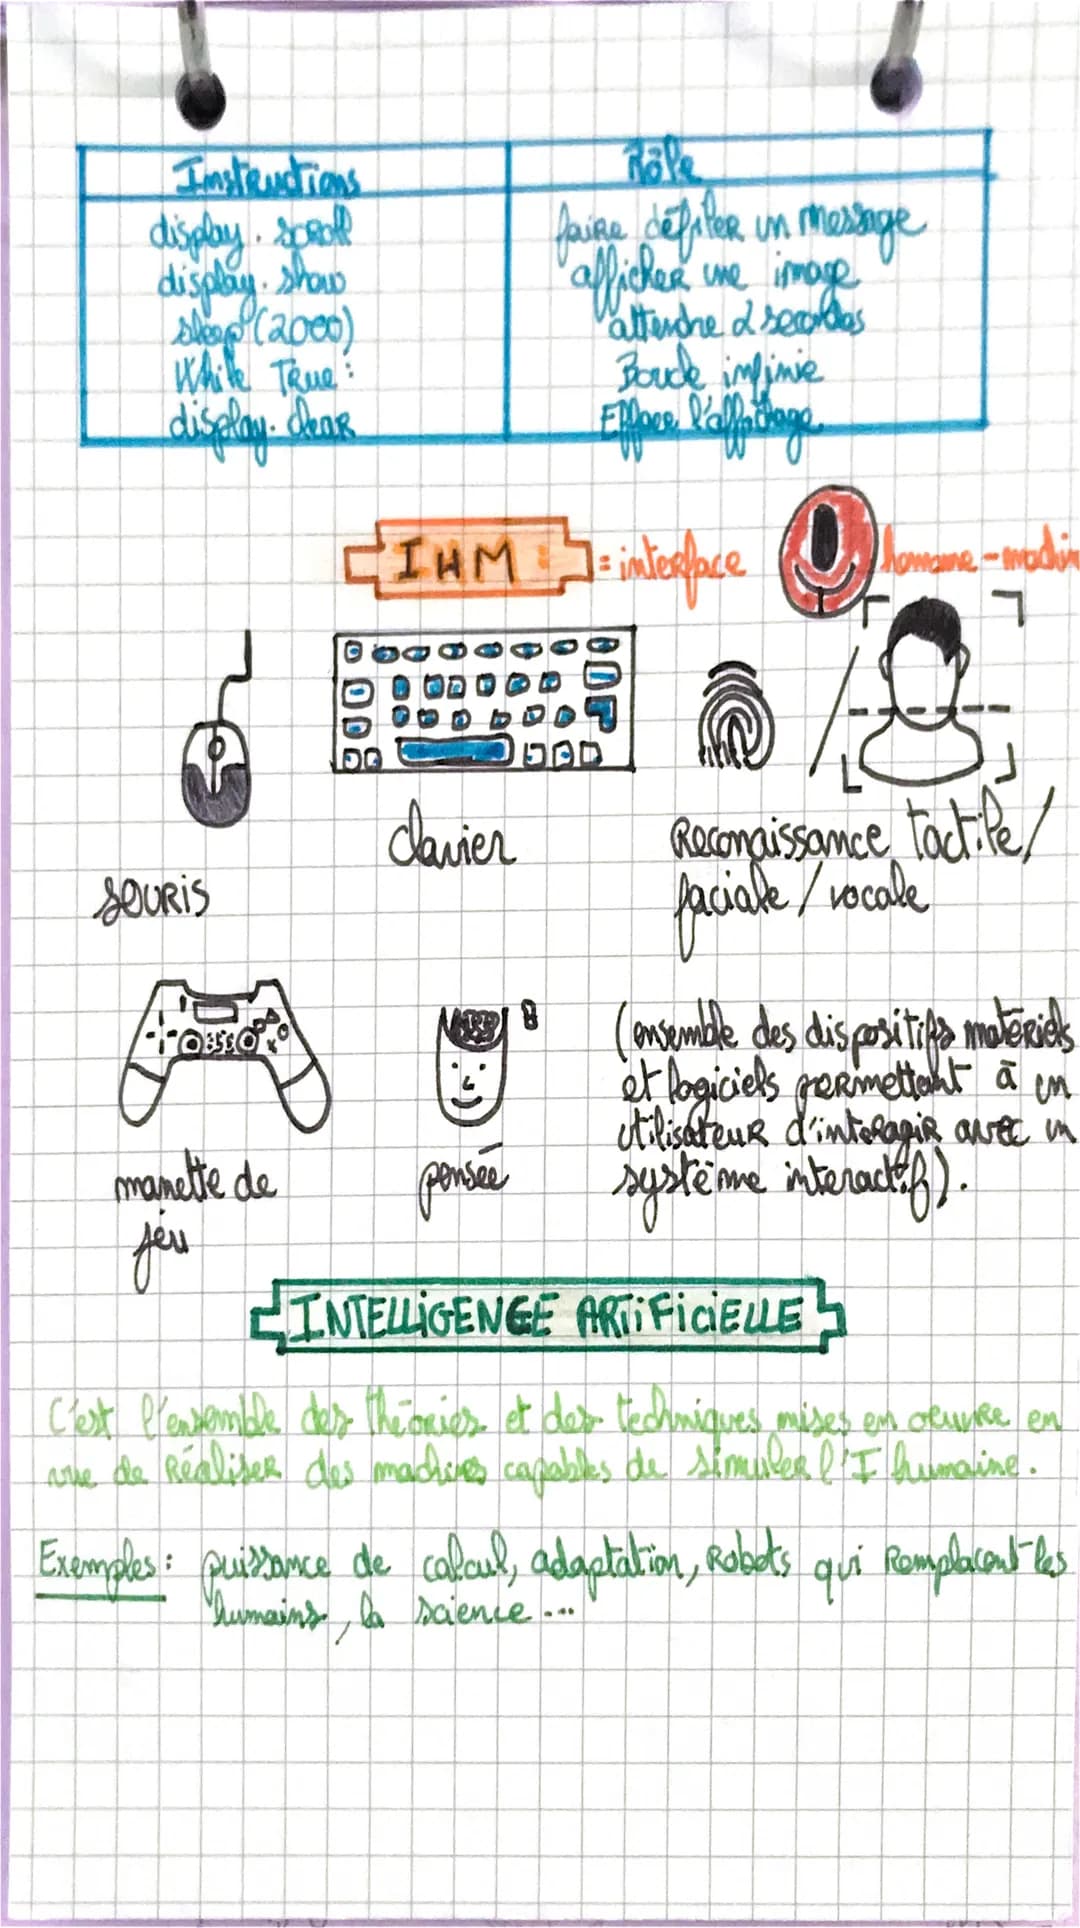 Instructions
Rôle
display.scroll
faire défiler un message
display.show
afficher une image
sleep(2000)
attendre 2 secondes
While True:
Boucle infinie
display.clear
Effacer l'affichage
IHM :
= interface homme-machin
souris
clavier
Reconaissance tactile/
faciale / vocale
manette de
jeu
pensée
(ensemble des dispositifs matériels
et logiciels permettant à un
utilisateur d'interagir avec un
système interactif).
INTELLIGENCE ARTIFICIELLE
C'est l'ensemble des théories et des techniques mises en œuvre en
vue de réaliser des machines capables de simuler l'I humaine.
Exemples : puissance de calcul, adaptation, Robots qui remplacent les
humains, la science ...